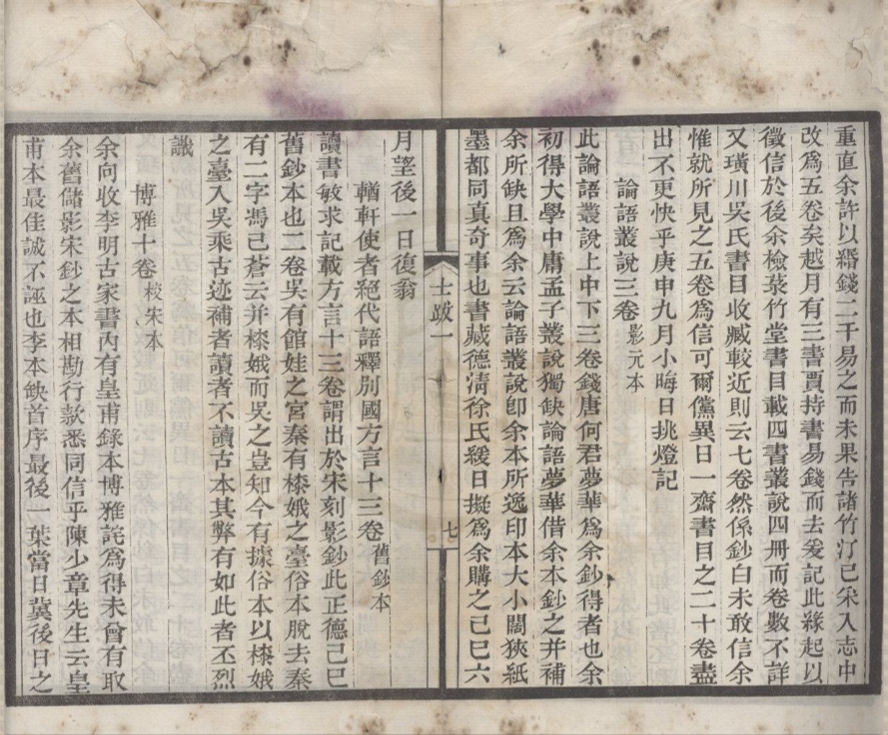 重直余許以緡錢二千易之而未果告諸竹汀已采入志中
改爲五卷矣越月有三書賈持書易錢而去爰記此緣起以
徵信於後余檢菉竹堂書目載四書叢說四冊而卷數不詳
又璜川吳氏書目收臧較近則云七卷然係鈔白未敢信余
惟就所見之五卷爲信可爾儻異日一齋書目之二十卷盡
出不更快乎庚申九月小晦日挑燈記
論語叢說三卷影元本
此論語叢說上中下三卷錢唐何君夢華爲余鈔得者也余
初得大學中庸孟子叢說獨缺論語夢華借余本鈔之并補
余所缺且爲余云論語叢說卽余本所逸印本大小闊狹紙
墨都同真奇事也書藏德清徐氏緩日擬爲余購之己巳六
士跋一
七
月望後一日復翁
輶軒使者絕代語釋別國方言十三卷舊鈔本
讀書敏求記載方言十三卷謂出於宋刻影鈔此正德己巳
舊鈔本也二卷吳有館娃之宮秦有㮈娥之臺俗本脫去秦
有二字馮己蒼云并㮈娥而吳之豈知今有據俗本以㮈娥
之臺入吳乘古迹補者讀者不讀古本其弊有如此者丕烈
識
博雅十卷校宋本
余向收李明古家書內有皇甫錄本博雅詫爲得未曾有取
余舊儲影宋鈔之本相勘行款悉同信乎陳少章先生云皇
甫本最佳誠不誣也李本缺首序最後一葉當日冀後日之